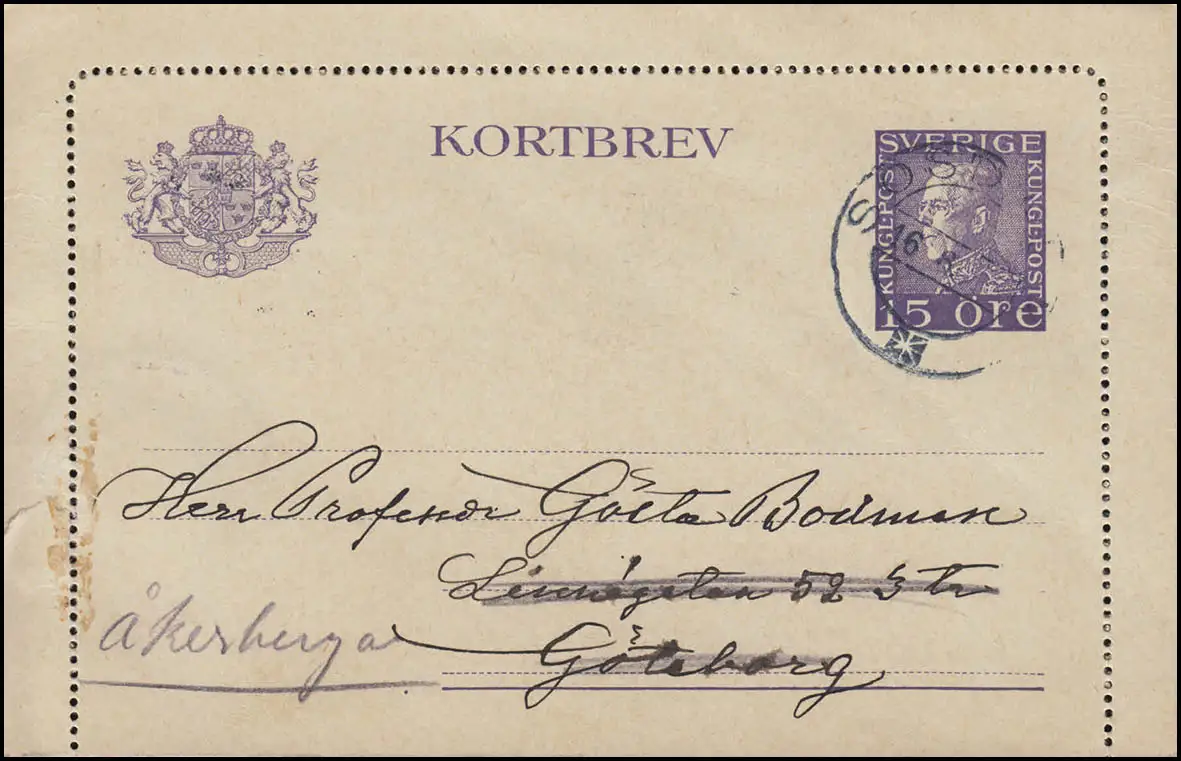 KORTBREV
SVERIGE
KUNGL·POST
KUNGL·POST
15 öre
16
Herr Professor Gösta Bodman
Linnégatan 52 3 tr
Göteborg
Åkersberga